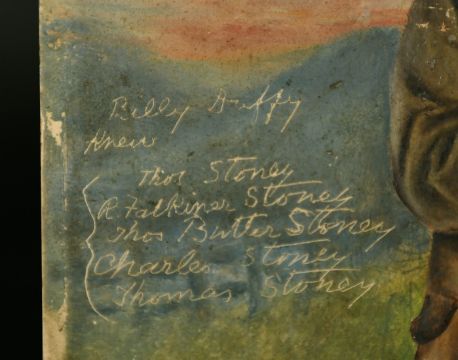 Billy Duffy
Knew
Thos Stoney
R. Falkiner Stoney
Thos Butler Stoney
Charles Stoney
Thomas Stoney